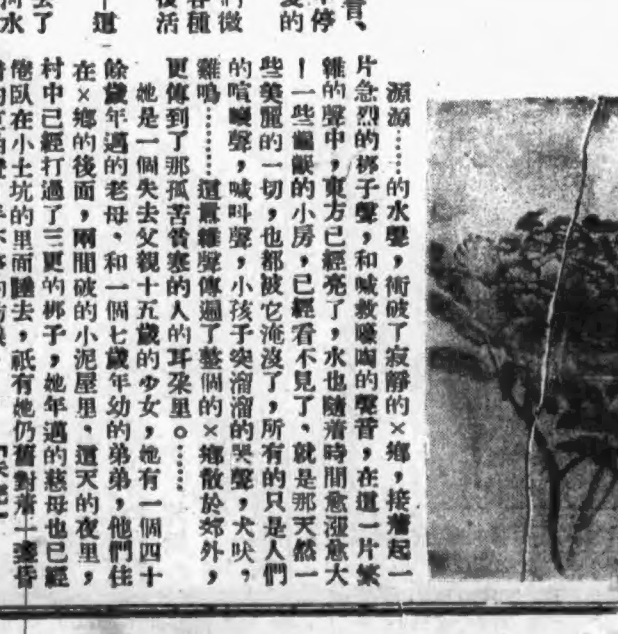 停
愛的
們微
各種
後活
這
去了
河水
源源……的水聲,衝破了寂靜的×鄉,接着起一
片急烈的梆子聲,和喊救嚎啕的聲音,在這一片繁
雜的聲中,東方已經亮了,水也隨着時間愈漲愈大
!一些的小房,已經看不見了、就是那天然一
些美麗的一切,也都被它淹沒了,所有的只是人們
的喧嚷聲,喊叫聲,小孩子突溜溜的哭聲,犬吠,
雞鳴………這雜聲傳遍了整個的×鄉散於郊外,
更傳到了那孤苦貧寒的人的耳朶里。……
她是一個失去父親十五歲的少女,她有一個四十
餘歲年邁的老母、和一個七歲年幼的弟弟,他們住
在×鄉的後面,兩間破的小泥屋里、這天的夜里,
村中已經打過了三更的梆子,她年邁的慈母也已經
倦臥在小土坑的里面睡去,祇有她仍舊對着一盞昏